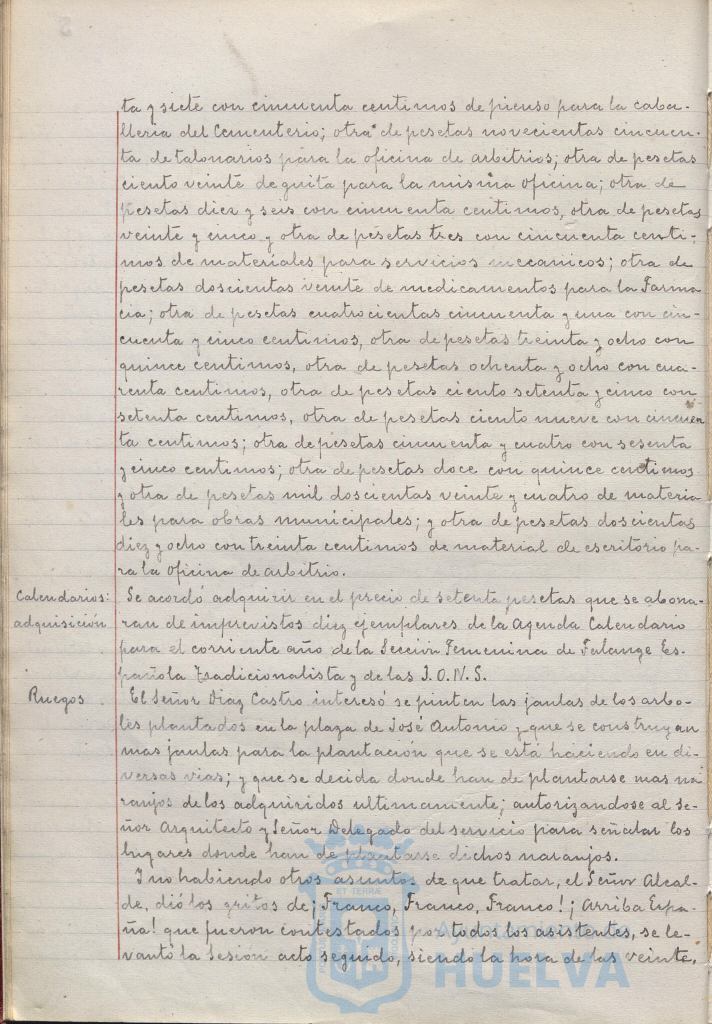 ta y siete con cincuenta centimos de pienso para la caba-
lleria del Cementerio; otra de pesetas novecientas cincuen-
ta de talonarios para la oficina de arbitrios; otra de pesetas
ciento veinte de guita para la misma oficina; otra de
pesetas diez y seis con cincuenta centimos, otra de pesetas
veinte y cinco y otra de pesetas tres con cincuenta centi-
mos de materiales para servicios mecanicos; otra de
pesetas doscientas veinte de medicamentos para la Farma-
cia; otra de pesetas cuatrocientas cincuenta y una con cin-
cuenta y cinco centimos, otra de pesetas treinta y ocho con
quince centimos, otra de pesetas ochenta y ocho con cua-
renta centimos, otra de pesetas ciento setenta y cinco con
setenta centimos, otra de pesetas ciento nueve con cincuen
ta centimos; otra de pesetas cincuenta y cuatro con sesenta
y cinco centimos; otra de pesetas doce con quince centimos
y otra de pesetas mil doscientas veinte y cuatro de materia-
les para obras municipales; y otra de pesetas doscientas
diez y ocho con treinta centimos de material de escritorio pa-
ra la oficina de arbitrio.
Calendarios:
adquisición
Se acordó adquirir en el precio de setenta pesetas que se abona-
ran de imprevistos diez ejemplares de la Agenda Calendario
para el corriente año de la Sección Femenina de Falange Es-
pañola Tradicionalista y de las J.O.N.S.
Ruegos
El Señor Diaz Castro interesó se pinten las jaulas de los arbo-
les plantados en la plaza de José Antonio y que se construyan
mas jaulas para la plantación que se está haciendo en di-
versas vias; y que se decida donde han de plantarse mas na
ranjos de los adquiridos ultimamente; autorizandose al Se-
ñor Arquitecto y Señor Delegado del servicio para señalar los
lugares donde han de plantarse dichos naranjos.
Y no habiendo otros asuntos de que tratar, el Señor Alcal-
de, dió los gritos de ¡Franco, Franco, Franco! ¡Arriba Espa-
ña! que fueron contestados por todos los asistentes, se le-
vantó la Sesión acto seguido, siendo la hora de las veinte,
Ayuntamiento de
HUELVA